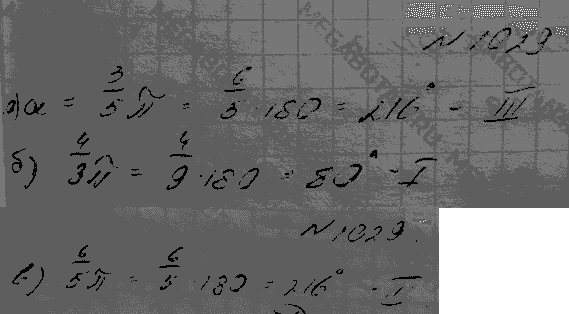 N 1029
а) α = 3/5 π = 6/5 · 180 = 216° - III
б) 4/3 π = 4/9 · 180 = 80° - I
N 1029.
в) 6/5 π = 6/5 · 180 = 216° - II